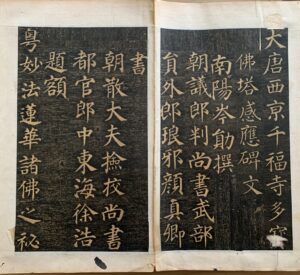 大唐西京千福寺多寶
佛塔感應碑文
南陽岑勛撰
朝議郎判尚書武部
貟外郎琅邪顏真卿
書
朝散大夫撿挍尚書
都官郎中東海徐浩
題額
粵妙法蓮華諸佛之秘